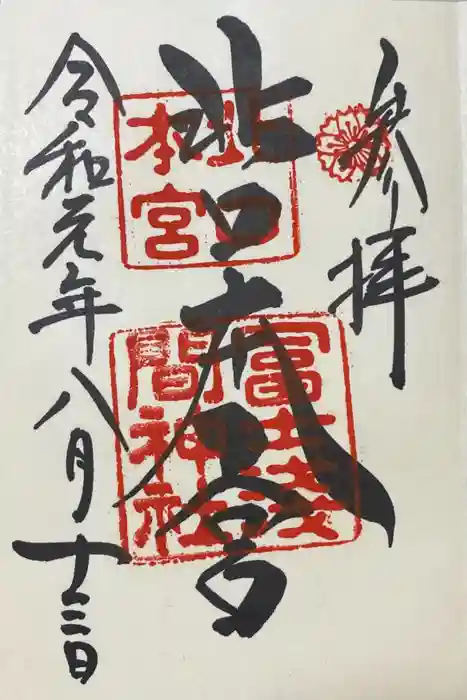 参拝
北口本宮
北口
本宮
冨士淺
間神社
令和元年八月十三日